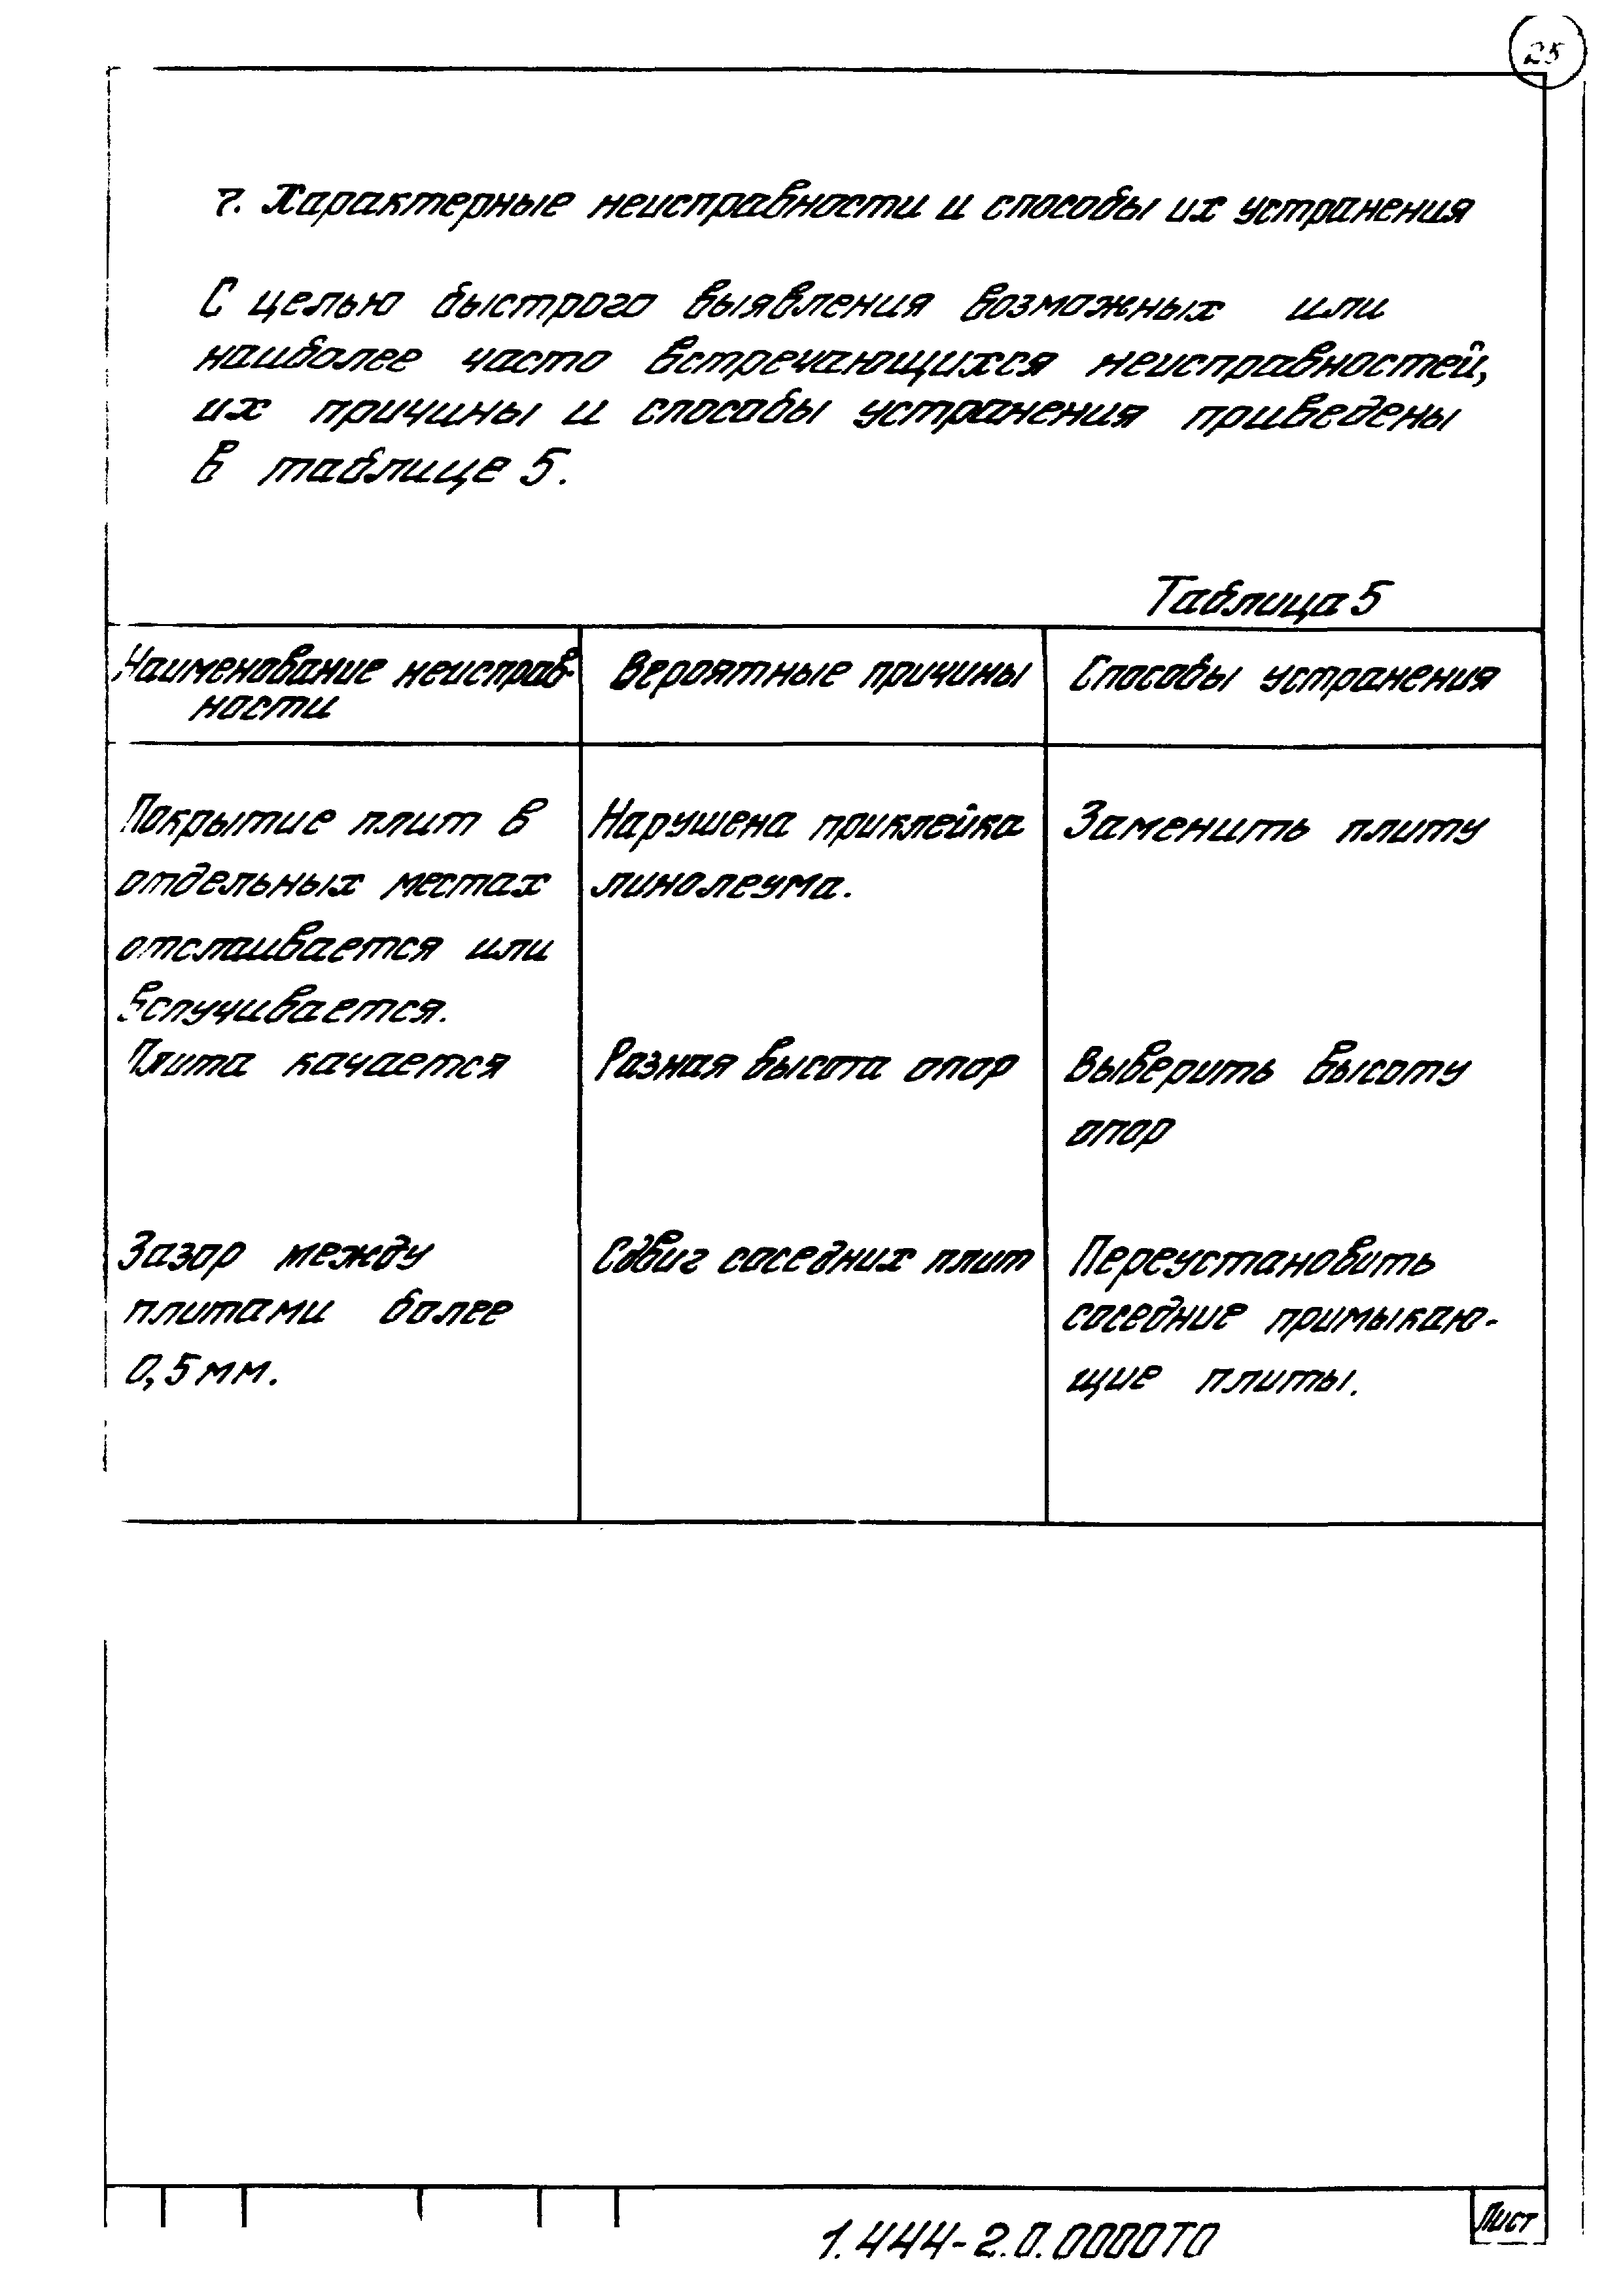 25
7. Характерные неисправности и способы их устранения
С целью быстрого выявления возможных или
наиболее часто встречающихся неисправностей,
их причины и способы устранения приведены
в таблице 5.
Таблица 5
Наименование неисправ-
ности
Вероятные причины
Способы устранения
Покрытие плит в
отдельных местах
отслаивается или
вспучивается.
Нарушена приклейка
линолеума.
Заменить плиту
Плита качается
Разная высота опор
Выверить высоту
опор
Зазор между
плитами более
0,5 мм.
Сдвиг соседних плит
Переустановить
соседние примыкаю-
щие плиты.
1.444-2.0.0000ТО
Лист